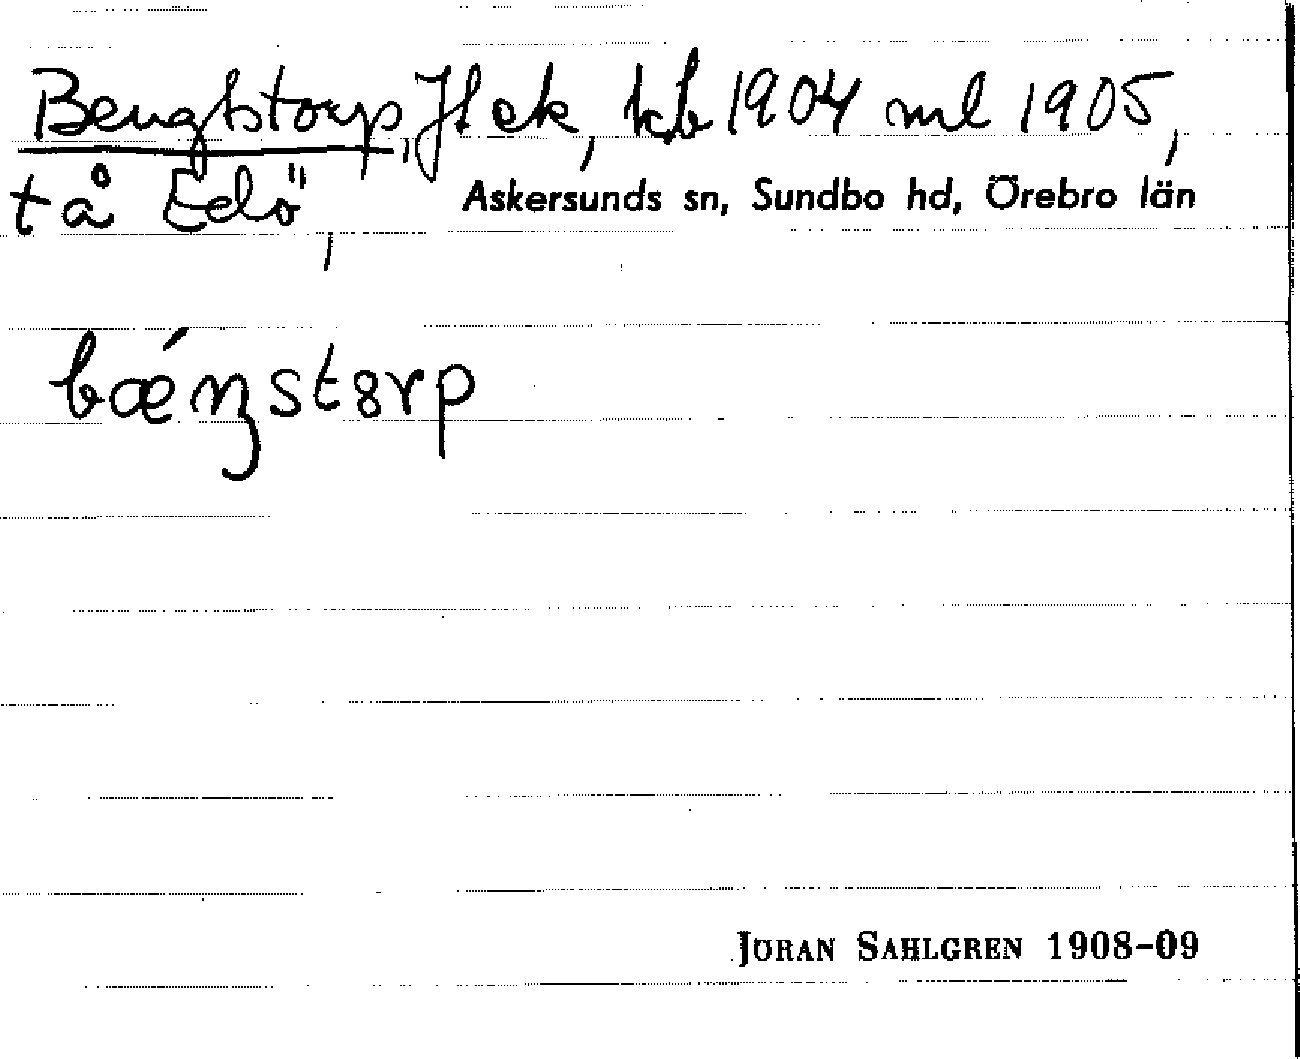 Bengtstorp, Jl ek, kb 1904 ml 1905,
tå Edö, Askersunds sn, Sundbo hd, Örebro län
bœ́ŋstȣrp
JÖRAN SAHLGREN 1908-09